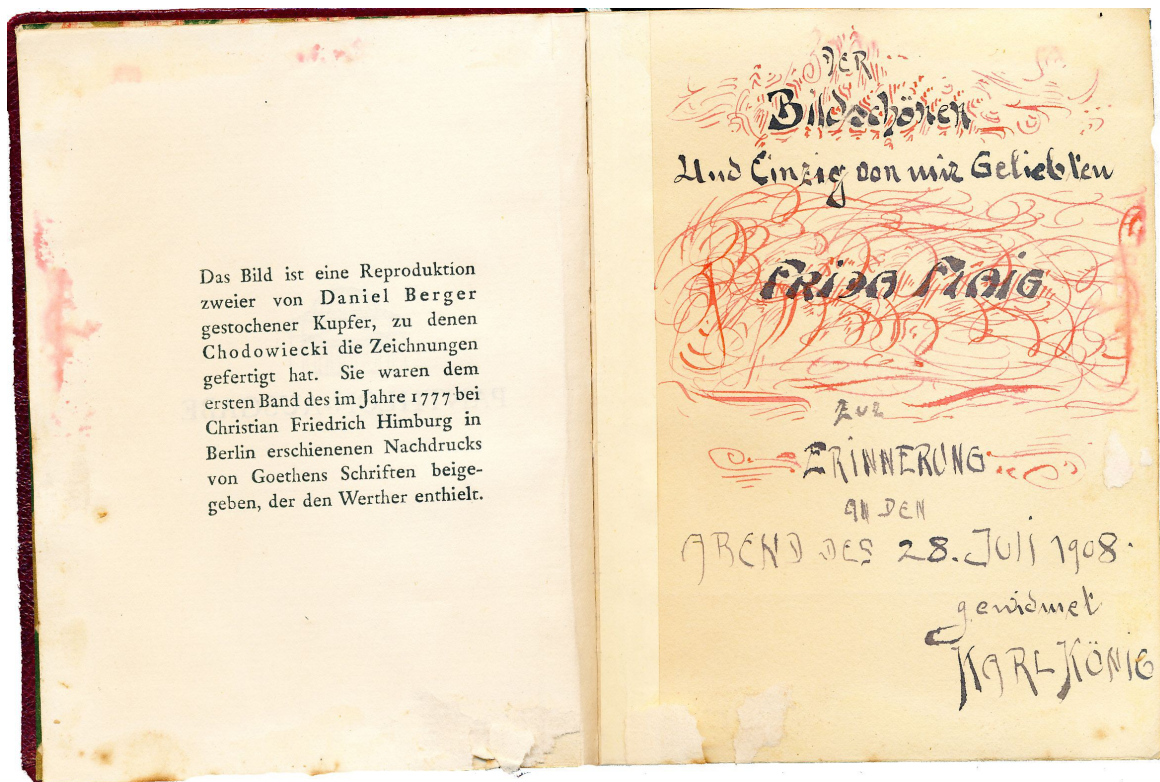 Das Bild ist eine Reproduktion
zweier von Daniel Berger
gestochener Kupfer, zu denen
Chodowiecki die Zeichnungen
gefertigt hat. Sie waren dem
ersten Band des im Jahre 1777 bei
Christian Friedrich Himburg in
Berlin erschienenen Nachdrucks
von Goethens Schriften beige-
geben, der den Werther enthielt.
DER
Bildschönen
Und Einzig von mir Geliebten
FRIDA FLAIG
Zur
ERINNERUNG
AN DEN
ABEND DES 28. JULI 1908.
gewidmet
KARL KÖNIG